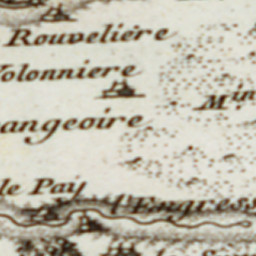 Rouveliere
Volonniere
Min
angeoire
le Paij
l'Engress